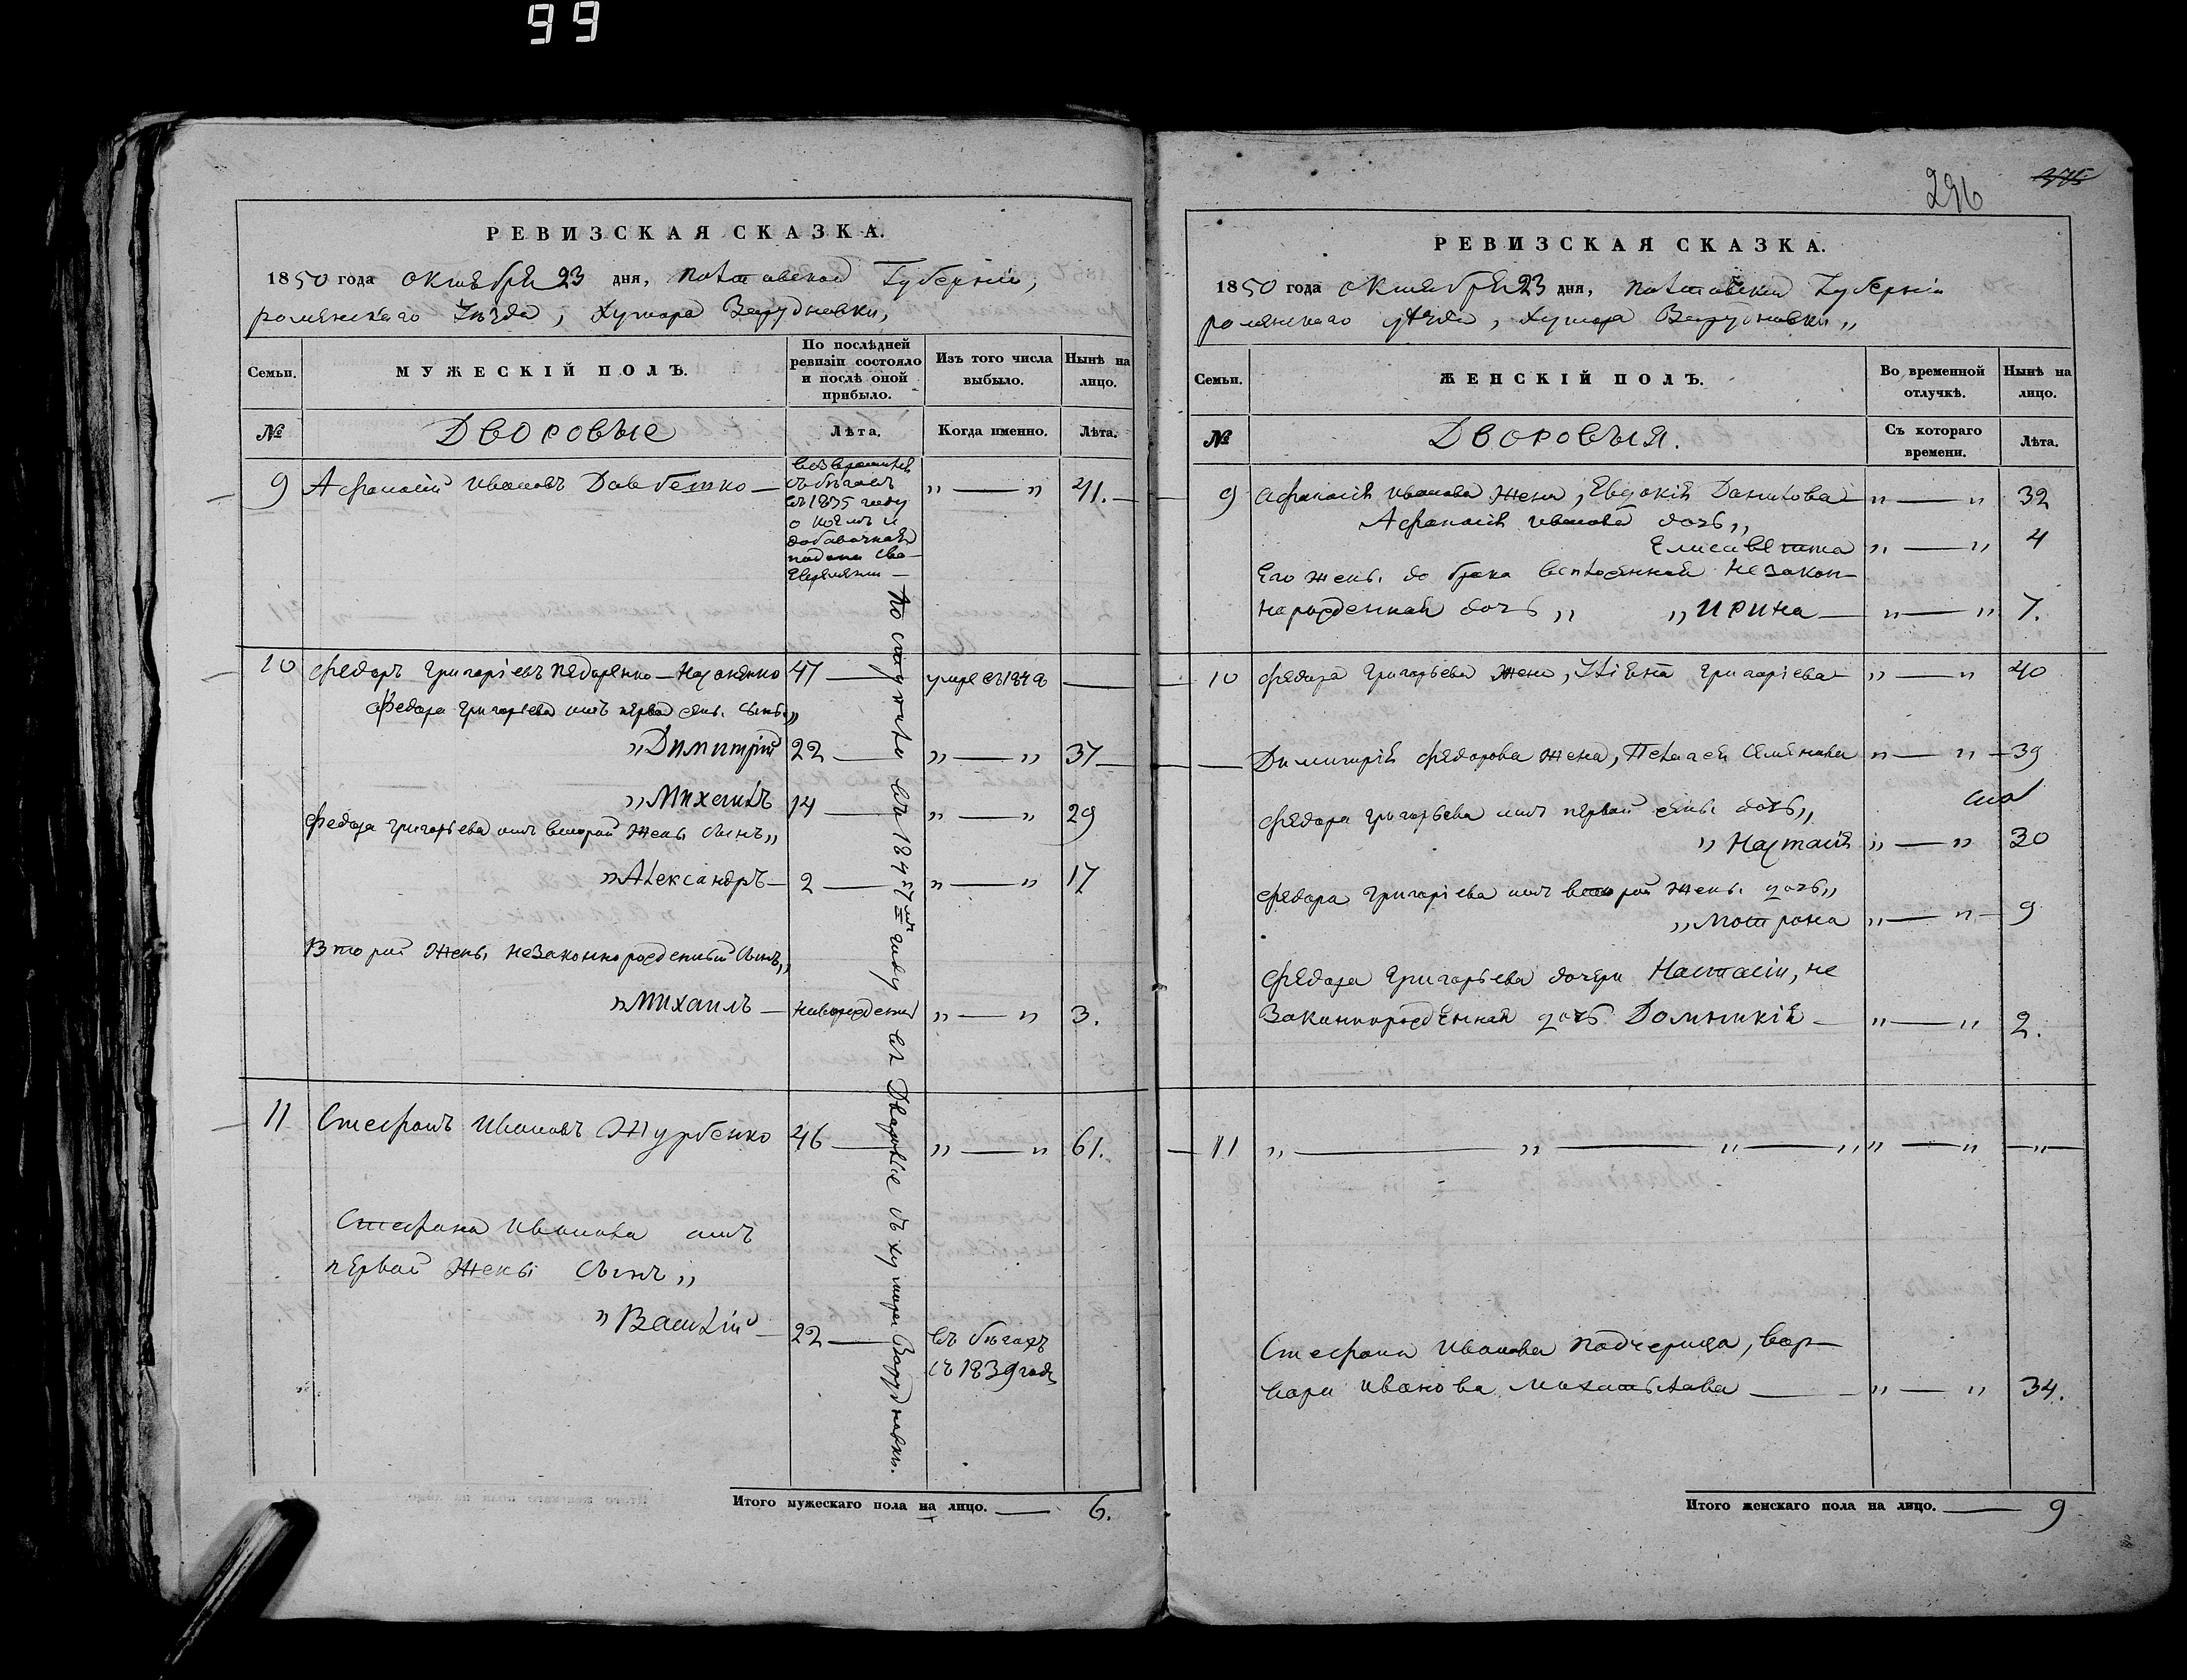 99
РЕВИЗСКАЯ СКАЗКА.
1850 года октября 23 дня, полтавской Губерніи,
роменскаго Уѣзда, Хутора Зарудновки,
Семьи.
МУЖЕСКІЙ ПОЛЪ.
По послѣдней
ревизіи состояло
и послѣ оной
прибыло.
Изъ того числа
выбыло.
Нынѣ на
лицо.
№
Дворовые
Лѣта.
Когда именно.
Лѣта.
9 Афанасій Ивановъ — „ — „ 41.
съ бѣговъ
въ 1835 году
о коемъ и
добавочная
подана
10 Федоръ Григоріевъ Федоренко — 47 — умре въ 184
Федора Григорьева отъ первой жены сынъ „
„ Димитрій 22 — „ — „ 37
„ Михаилъ 14 — „ — „ 29
Федора Григорьева отъ второй жены сынъ „
„ Александръ — 2 — „ — „ 17
Второй жены незаконнорожденный сынъ „
„ Михаилъ — новорожденъ „ — „ 3.
11 Стефанъ Ивановъ Журбенко 46 — „ — „ 61.
Стефана Иванова отъ
первой жены сынъ „
„ Василій — 22 — въ бѣгахъ
съ 1839 года
По поступили въ 1847 году въ Дворовые съ хутора Зарудновки.
Итого мужескаго пола на лицо. — 6.
296 275
РЕВИЗСКАЯ СКАЗКА.
1850 года октября 23 дня, полтавской Губерніи
роменскаго уѣзда, хутора Зарудновки „
Семьи.
ЖЕНСКІЙ ПОЛЪ.
Во временной
отлучкѣ.
Нынѣ на
лицо.
№
Дворовыя.
Съ котораго
времени.
Лѣта.
9 Афанасія Иванова жена, Евдокія Данилова — „ — „ 32
Афанасія Иванова дочь „
Елисавета „ — „ 4
Его жены до брака незакон-
норожденная дочь „ „ Ирина — „ — „ 7.
10 Федора Григорьева жена, Ульяна Григоріева — „ — „ 40
Димитрія Федорова жена, Пелагея Семенова „ — „ — 39
Федора Григорьева отъ первой жены дочь „
„ Настасія „ — „ 30
Федора Григоріева отъ второй жены дочь „
„ Мотрона „ — „ — 9
Федора Григорьева дочери Настасіи, не
законнорожденная дочь Доминикія — „ — „ 2.
11 „ — „ — „ — „ „ — „ — „ —
Стефана Иванова падчерица, вар-
вара Иванова — „ — „ 34.
Итого женскаго пола на лицо. — 9